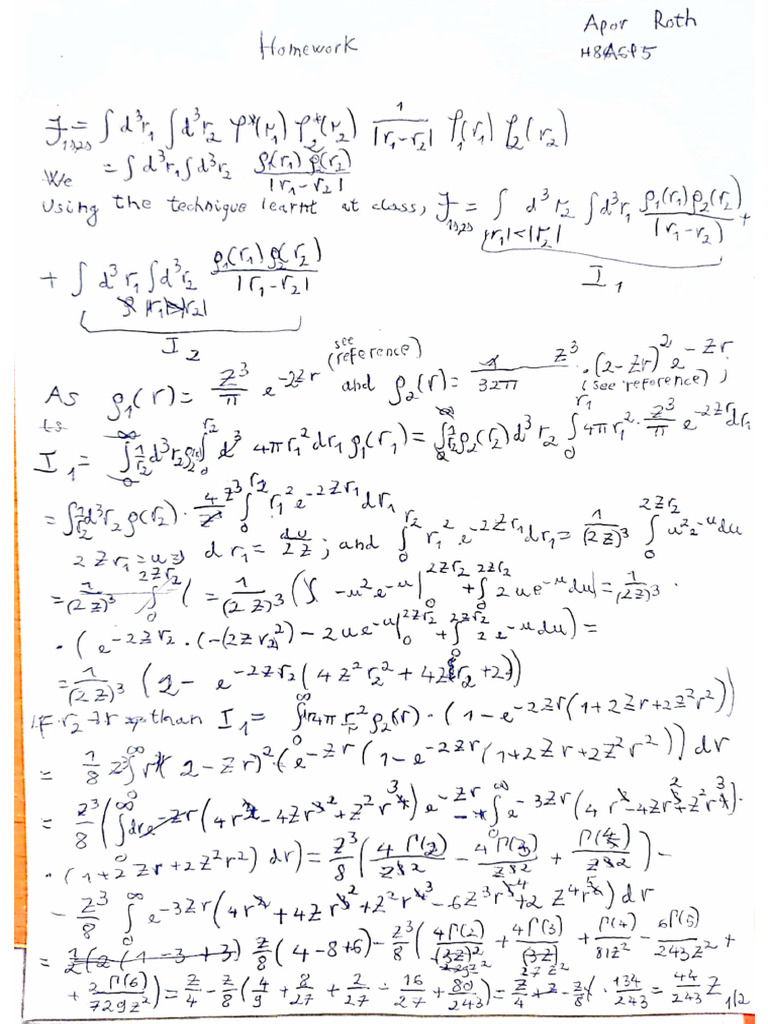 Apor Roth
Homework
H8A5P5
J_{1s,2s} = ∫d³r₁ ∫d³r₂ φ₁*(r₁) φ₂*(r₂) 1/|r₁-r₂| φ₁(r₁) φ₂(r₂)
We = ∫d³r₁∫d³r₂ ρ₁(r₁) ρ₂(r₂)/|r₁-r₂|
Using the technique learnt at class, J_{1s,2s} = ∫_{|r₁|<|r₂|} d³r₂ ∫d³r₁ ρ₁(r₁)ρ₂(r₂)/|r₁-r₂| +
I₁
+ ∫ d³r₁ ∫d³r₂ ρ₁(r₁)ρ₂(r₂)/|r₁-r₂|
|r₁|>|r₂|
I₂
As ρ₁(r) = Z³/π e^{-2Zr} (see reference) and ρ₂(r) = Z³/32π · (2-Zr)² e^{-Zr} (see reference);
I₁ = ∫ 1/r₂ d³r₂ ρ₂ ∫₀^{r₂} 4πr₁² dr₁ ρ₁(r₁) = ∫ 1/r₂ ρ₂(r₂) d³r₂ ∫₀^{r₁} 4πr₁² · Z³/π e^{-2Zr₁} dr₁
= ∫ 1/r₂ d³r₂ ρ(r₂) · 4Z³ ∫₀^{r₂} r₁² e^{-2Zr₁} dr₁
2Zr₁ = u ⇒ dr₁ = du/2Z ; and ∫₀^{r₂} r₁² e^{-2Zr₁} dr₁ = 1/(2Z)³ ∫₀^{2Zr₂} u² e^{-u} du
= 1/(2Z)³ ( = 1/(2Z)³ ( -u² e^{-u} |₀^{2Zr₂} + ∫₀^{2Zr₂} 2u e^{-u} du ) = 1/(2Z)³ ·
· ( e^{-2Zr₂} · (-(2Zr₂)²) - 2u e^{-u} |₀^{2Zr₂} + ∫₀^{2Zr₂} 2 e^{-u} du ) =
= 1/(2Z)³ (2 - e^{-2Zr₂} (4Z²r₂² + 4Zr₂ + 2))
If r₂ → r than I₁ = ∫₀^∞ 4π r²/r ρ₂(r) · (1 - e^{-2Zr} (1+2Zr+2Z²r²))
= 1/8 Z³ ∫₀^∞ r (2-Zr)² · (e^{-Zr} (1 - e^{-2Zr} (1+2Zr+2Z²r²))) dr
= Z³/8 ( ∫₀^∞ dr (4r - 4Zr² + Z²r³) e^{-Zr} - ∫₀^∞ e^{-3Zr} (4r - 4Zr² + Z²r³) ·
· (1+2Zr+2Z²r²) dr) = Z³/8 ( 4Γ(2)/Z² - 4Γ(3)/Z² + Γ(4)/Z² ) -
- Z³/8 ∫₀^∞ e^{-3Zr} (4r + 4Zr² + Z²r³ - 6Z³r⁴ + 2Z⁴r⁵) dr
= Z/8 (4-8+6) - Z³/8 ( 4Γ(2)/(3Z)² + 4Γ(3)/27Z² + Γ(4)/81Z² - 6Γ(5)/243Z² +
+ 2Γ(6)/729Z² ) = Z/4 - Z/8 ( 4/9 + 8/27 + 2/27 - 16/27 + 80/243 ) = Z/4 - Z/8 ( · 134/243 = 44/243 Z
1/2